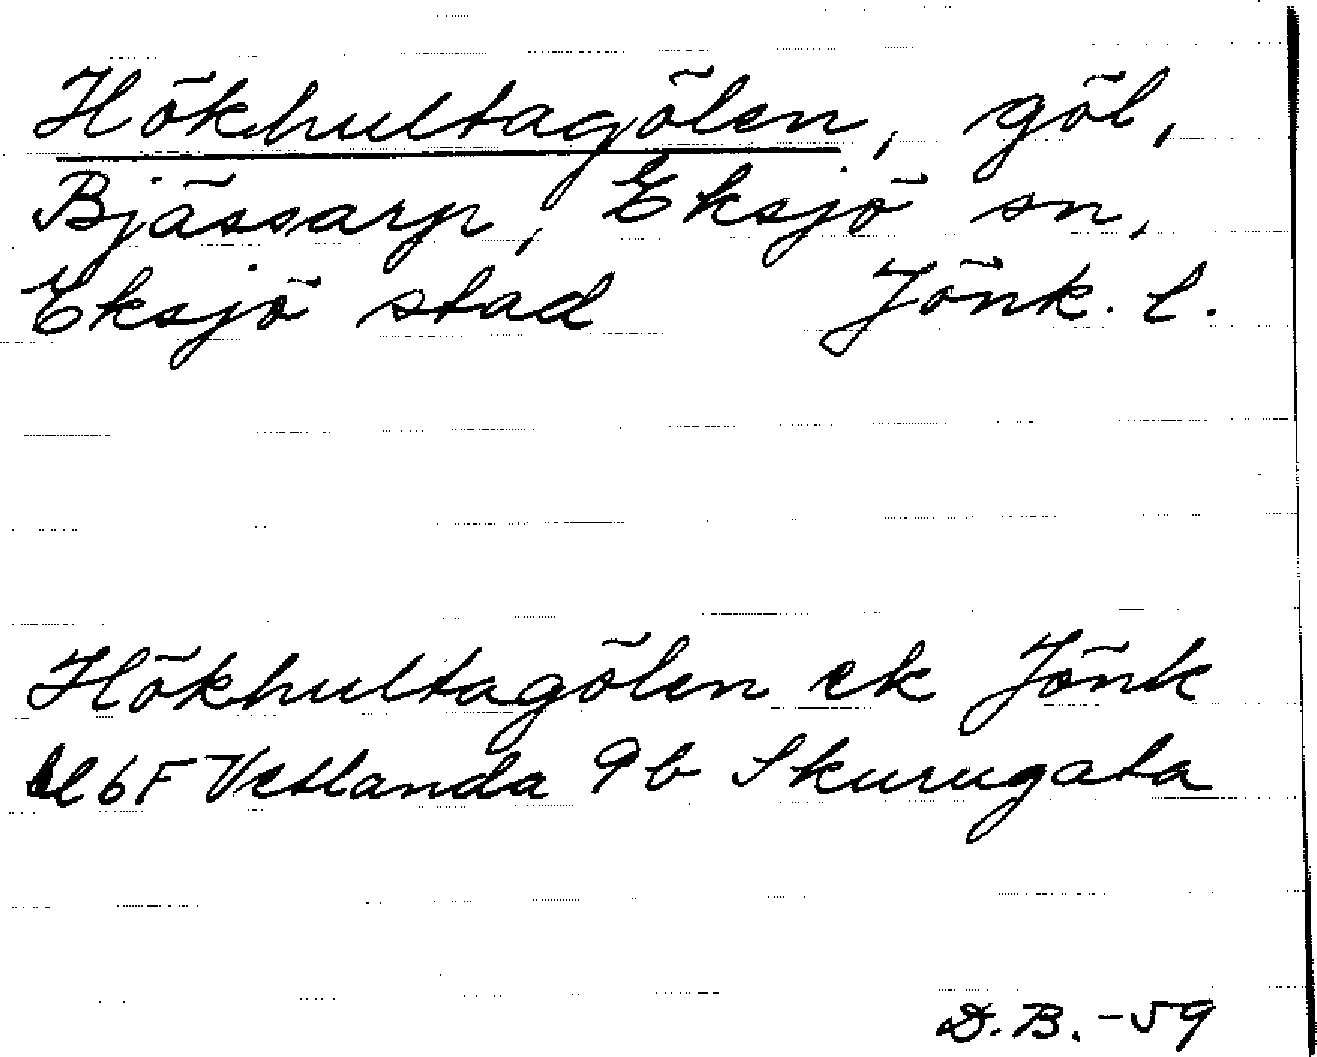 Hökhultagölen, göl,
Bjässarp, Eksjö sn,
Eksjö stad Jönk. l.
Hökhultagölen ek Jönk
6F Vetlanda 9b Skurugata
D.B. -59